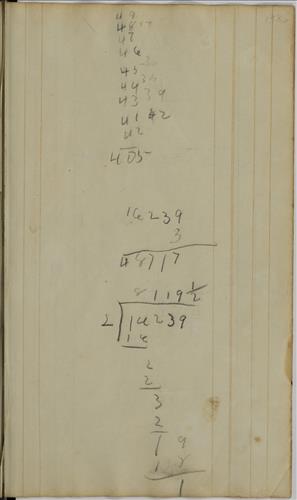 49
48 17
47
46
45 3
44 34
43 39
41 42
42
405
16239
3
48717
8119 1/2
2 16239
16
2
2
3
2
19
18
1